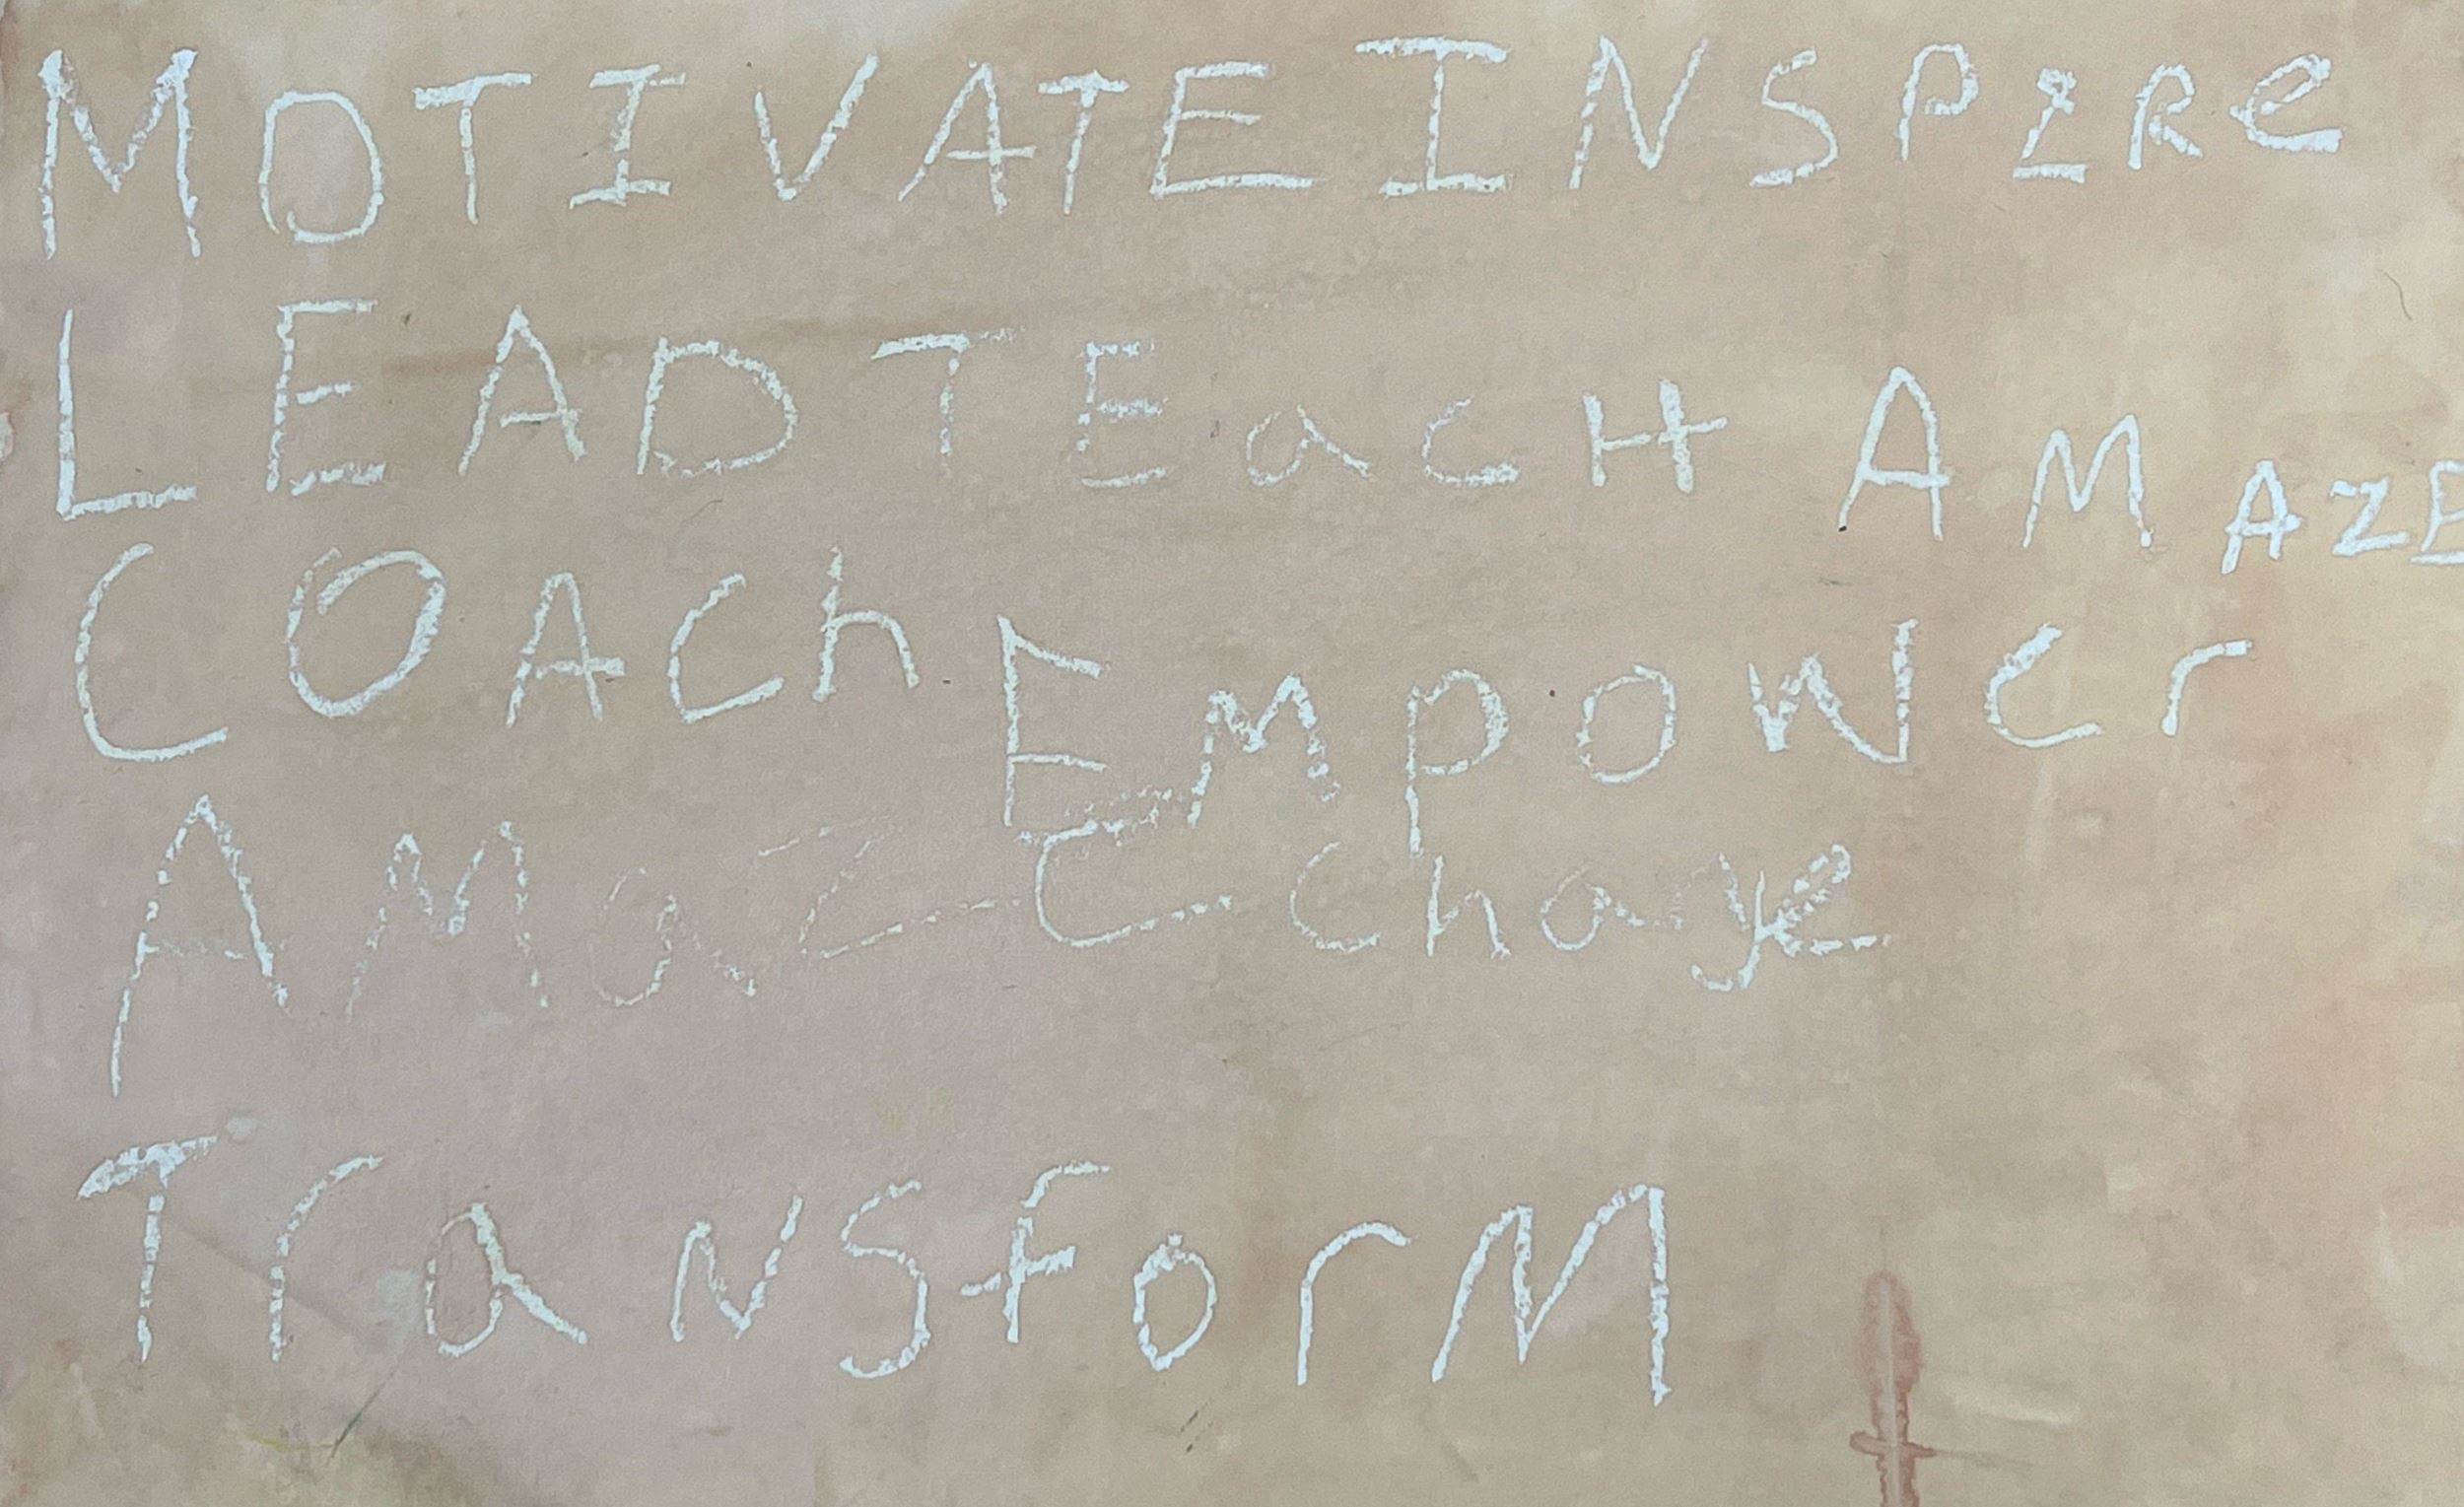 MOTIVATE INSPIRe
LEAD TEacH AMAZE
COACh EmpoWer
AMaze Chage
TraNsforM